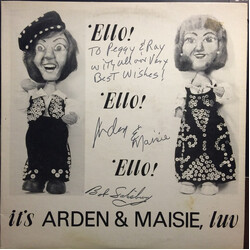 'Ello!
To Peggy & Ray
with all our Very
Best Wishes!
'Ello!
Arden & Maisie
'Ello!
Bob
it's ARDEN & MAISIE, luv